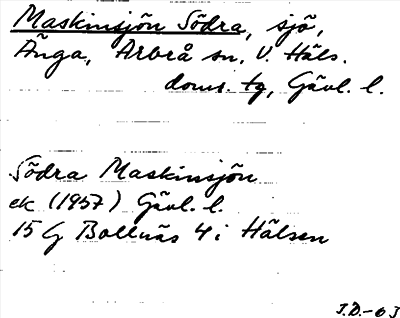 Maskinsjön Södra, sjö,
Änga, Arbrå sn, V. Häls.
doms. tg, Gävl. l.
Södra Maskinsjön
ek (1957) Gävl. l.
15 G Bollnäs 4 i Hälsen
J.D.-63